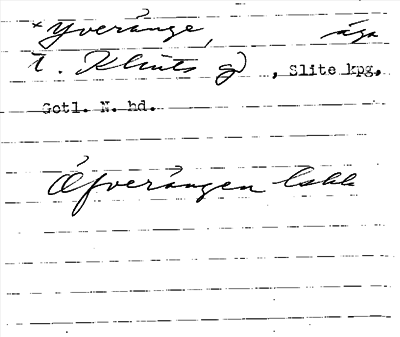 *Yverånge, äga
t. Klints gd, Slite kpg,
Gotl. N. hd.
Öfverängen Lskk